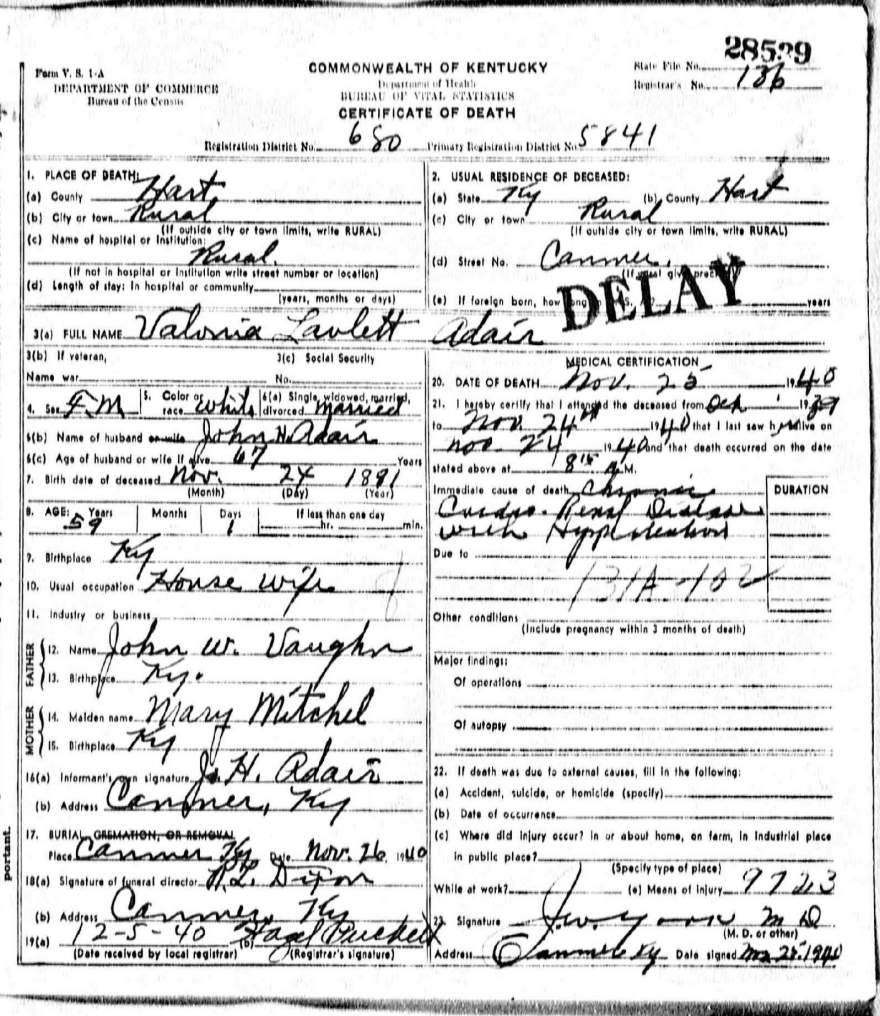 28539
Form V. S. 1-A
DEPARTMENT OF COMMERCE
Bureau of the Census
COMMONWEALTH OF KENTUCKY
Department of Health
BUREAU OF VITAL STATISTICS
CERTIFICATE OF DEATH
State File No.
Registrar's No. 136
Registration District No. 680 Primary Registration District No. 5841
1. PLACE OF DEATH:
(a) County Hart
(b) City or town Rural
(If outside city or town limits, write RURAL)
(c) Name of hospital or Institution:
Rural.
(If not in hospital or institution write street number or location)
(d) Length of stay: In hospital or community
(years, months or days)
2. USUAL RESIDENCE OF DECEASED:
(a) State Ky (b) County Hart
(c) City or town Rural
(If outside city or town limits, write RURAL)
(d) Street No. Canmer.
(If rural give precinct)
(e) If foreign born, how long in U. S. A.? years
DELAY
3(a) FULL NAME Valonia Lavlett Adair
3(b) If veteran, 3(c) Social Security
Name war No.
4. Sex FM 5. Color or race white 6(a) Single, widowed, married, divorced married
6(b) Name of husband or wife John H. Adair
6(c) Age of husband or wife if alive 67 Years
7. Birth date of deceased Nov. 24 1881
(Month) (Day) (Year)
8. AGE: Years Months Days If less than one day
59 1 hr. min.
9. Birthplace Ky
10. Usual occupation House wife
11. Industry or business
FATHER
12. Name John W. Vaughn
13. Birthplace Ky.
MOTHER
14. Maiden name Mary Mitchel
15. Birthplace Ky
16(a) Informant's own signature J. H. Adair
(b) Address Canmer, Ky
17. BURIAL, CREMATION, OR REMOVAL
Place Canmer Ky Date Nov. 26 1940
18(a) Signature of funeral director R.L. Dixon
(b) Address Canmer, Ky
19(a) 12-5-40 (b) Hazel Puckett
(Date received by local registrar) (Registrar's signature)
MEDICAL CERTIFICATION
20. DATE OF DEATH Nov. 25 1940
21. I hereby certify that I attended the deceased from Oct 1 1939
to Nov. 24th 1940 that I last saw her alive on
Nov. 24 1940 and that death occurred on the date
stated above at 8 15 a M.
Immediate cause of death Chronic
Cardio-Renal Disease
with Hypertention
DURATION
Due to
131A-102
Other conditions
(Include pregnancy within 3 months of death)
Major findings:
Of operations
Of autopsy
22. If death was due to external causes, fill in the following:
(a) Accident, suicide, or homicide (specify)
(b) Date of occurrence
(c) Where did injury occur? in or about home, on farm, in industrial place
in public place?
(Specify type of place)
While at work? (e) Means of injury 9723
23. Signature M D
(M. D. or other)
Address Canmer Ky Date signed 1940
portant.